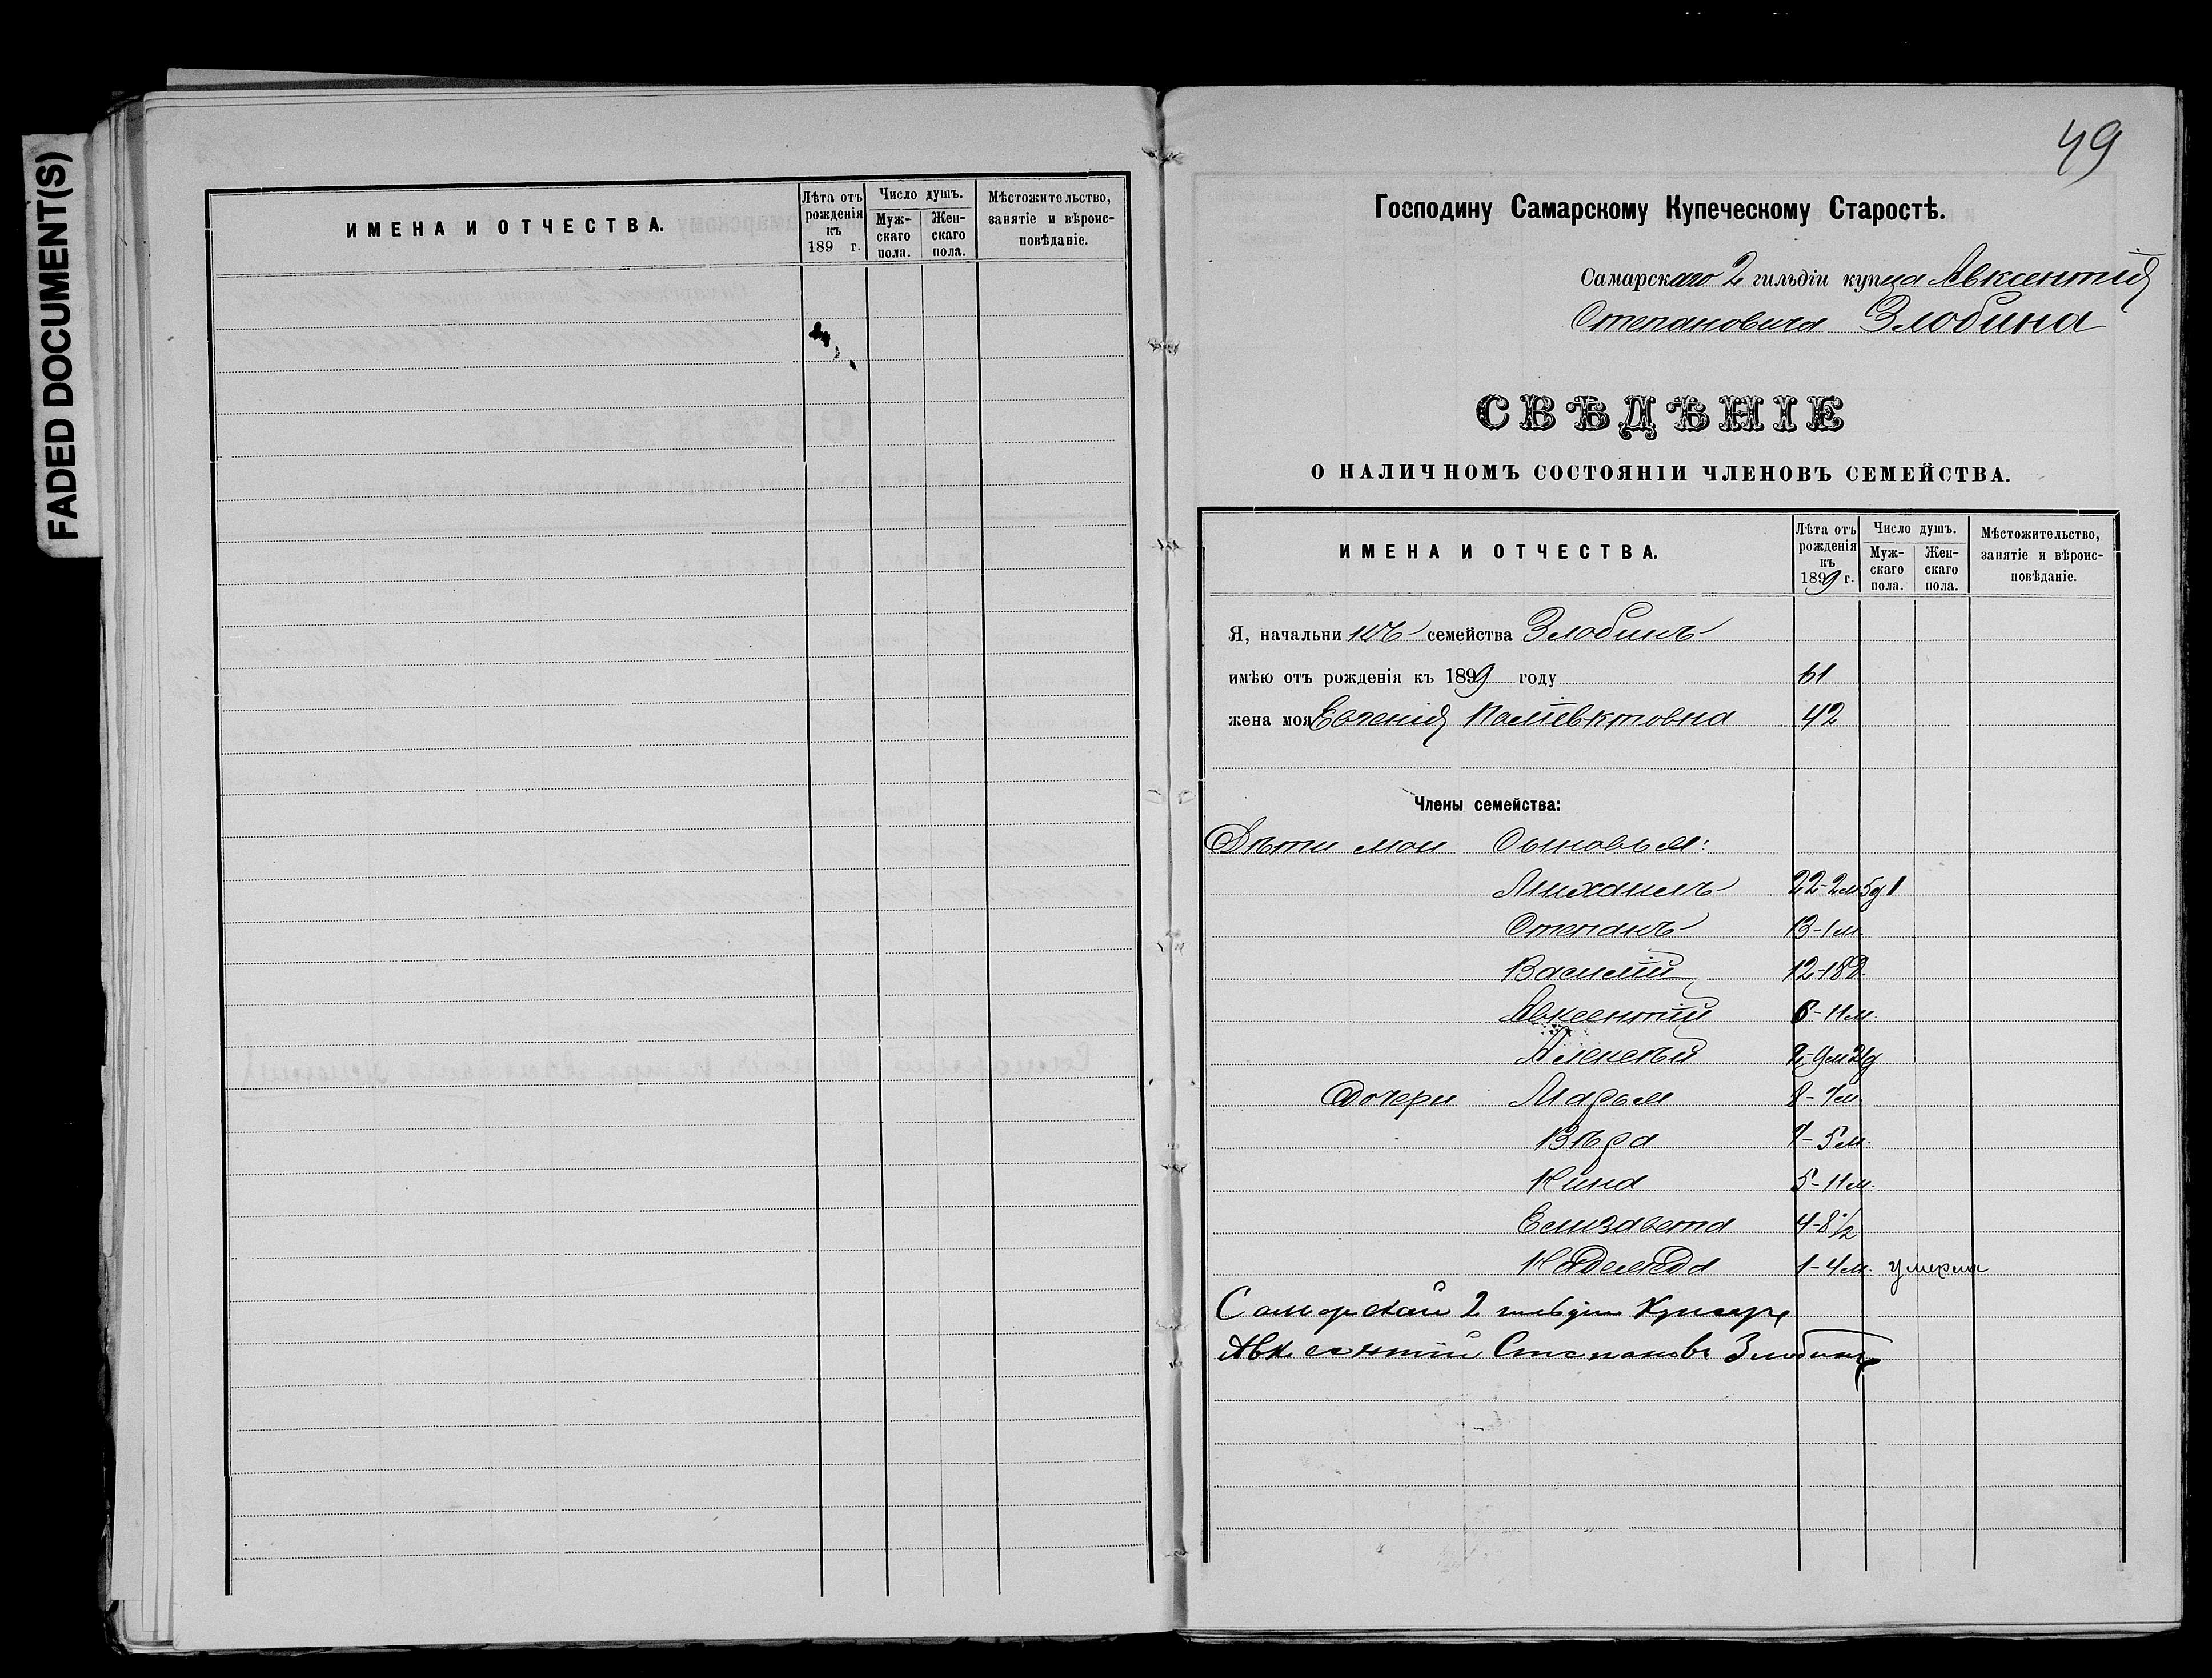 FADED DOCUMENT(S)
ИМЕНА И ОТЧЕСТВА.
Лѣта отъ рожденія къ 189 г.
Число душъ.
Мужскаго пола.
Женскаго пола.
Мѣстожительство, занятіе и вѣроисповѣданіе.
49
Господину Самарскому Купеческому Старостѣ.
Самарскаго 2 гильдіи купца Авксентія
Степановича Злобина
СВѢДѢНІЕ
О НАЛИЧНОМЪ СОСТОЯНІИ ЧЛЕНОВЪ СЕМЕЙСТВА.
ИМЕНА И ОТЧЕСТВА.
Лѣта отъ рожденія къ 1899 г.
Число душъ.
Мужскаго пола.
Женскаго пола.
Мѣстожительство, занятіе и вѣроисповѣданіе.
Я, начальникъ семейства Злобинъ
имѣю отъ рожденія къ 1899 году 61
жена моя Евгенія Поліевктовна 42
Члены семейства:
Дѣти мои Сыновья:
Михаилъ 22-2м5д1
Степанъ 13-1м.
Василій 12-18д.
Авксентій 6-11м.
Алексѣй 2-9м21д
Дочери Марья 8-7м
Вѣра 7-5м.
Нина 5-11м.
Елизавета 4-8½
Надежда 1-4м. умерла
Самарскай 2 гильдіи
Авксентій Степановъ Злобинъ